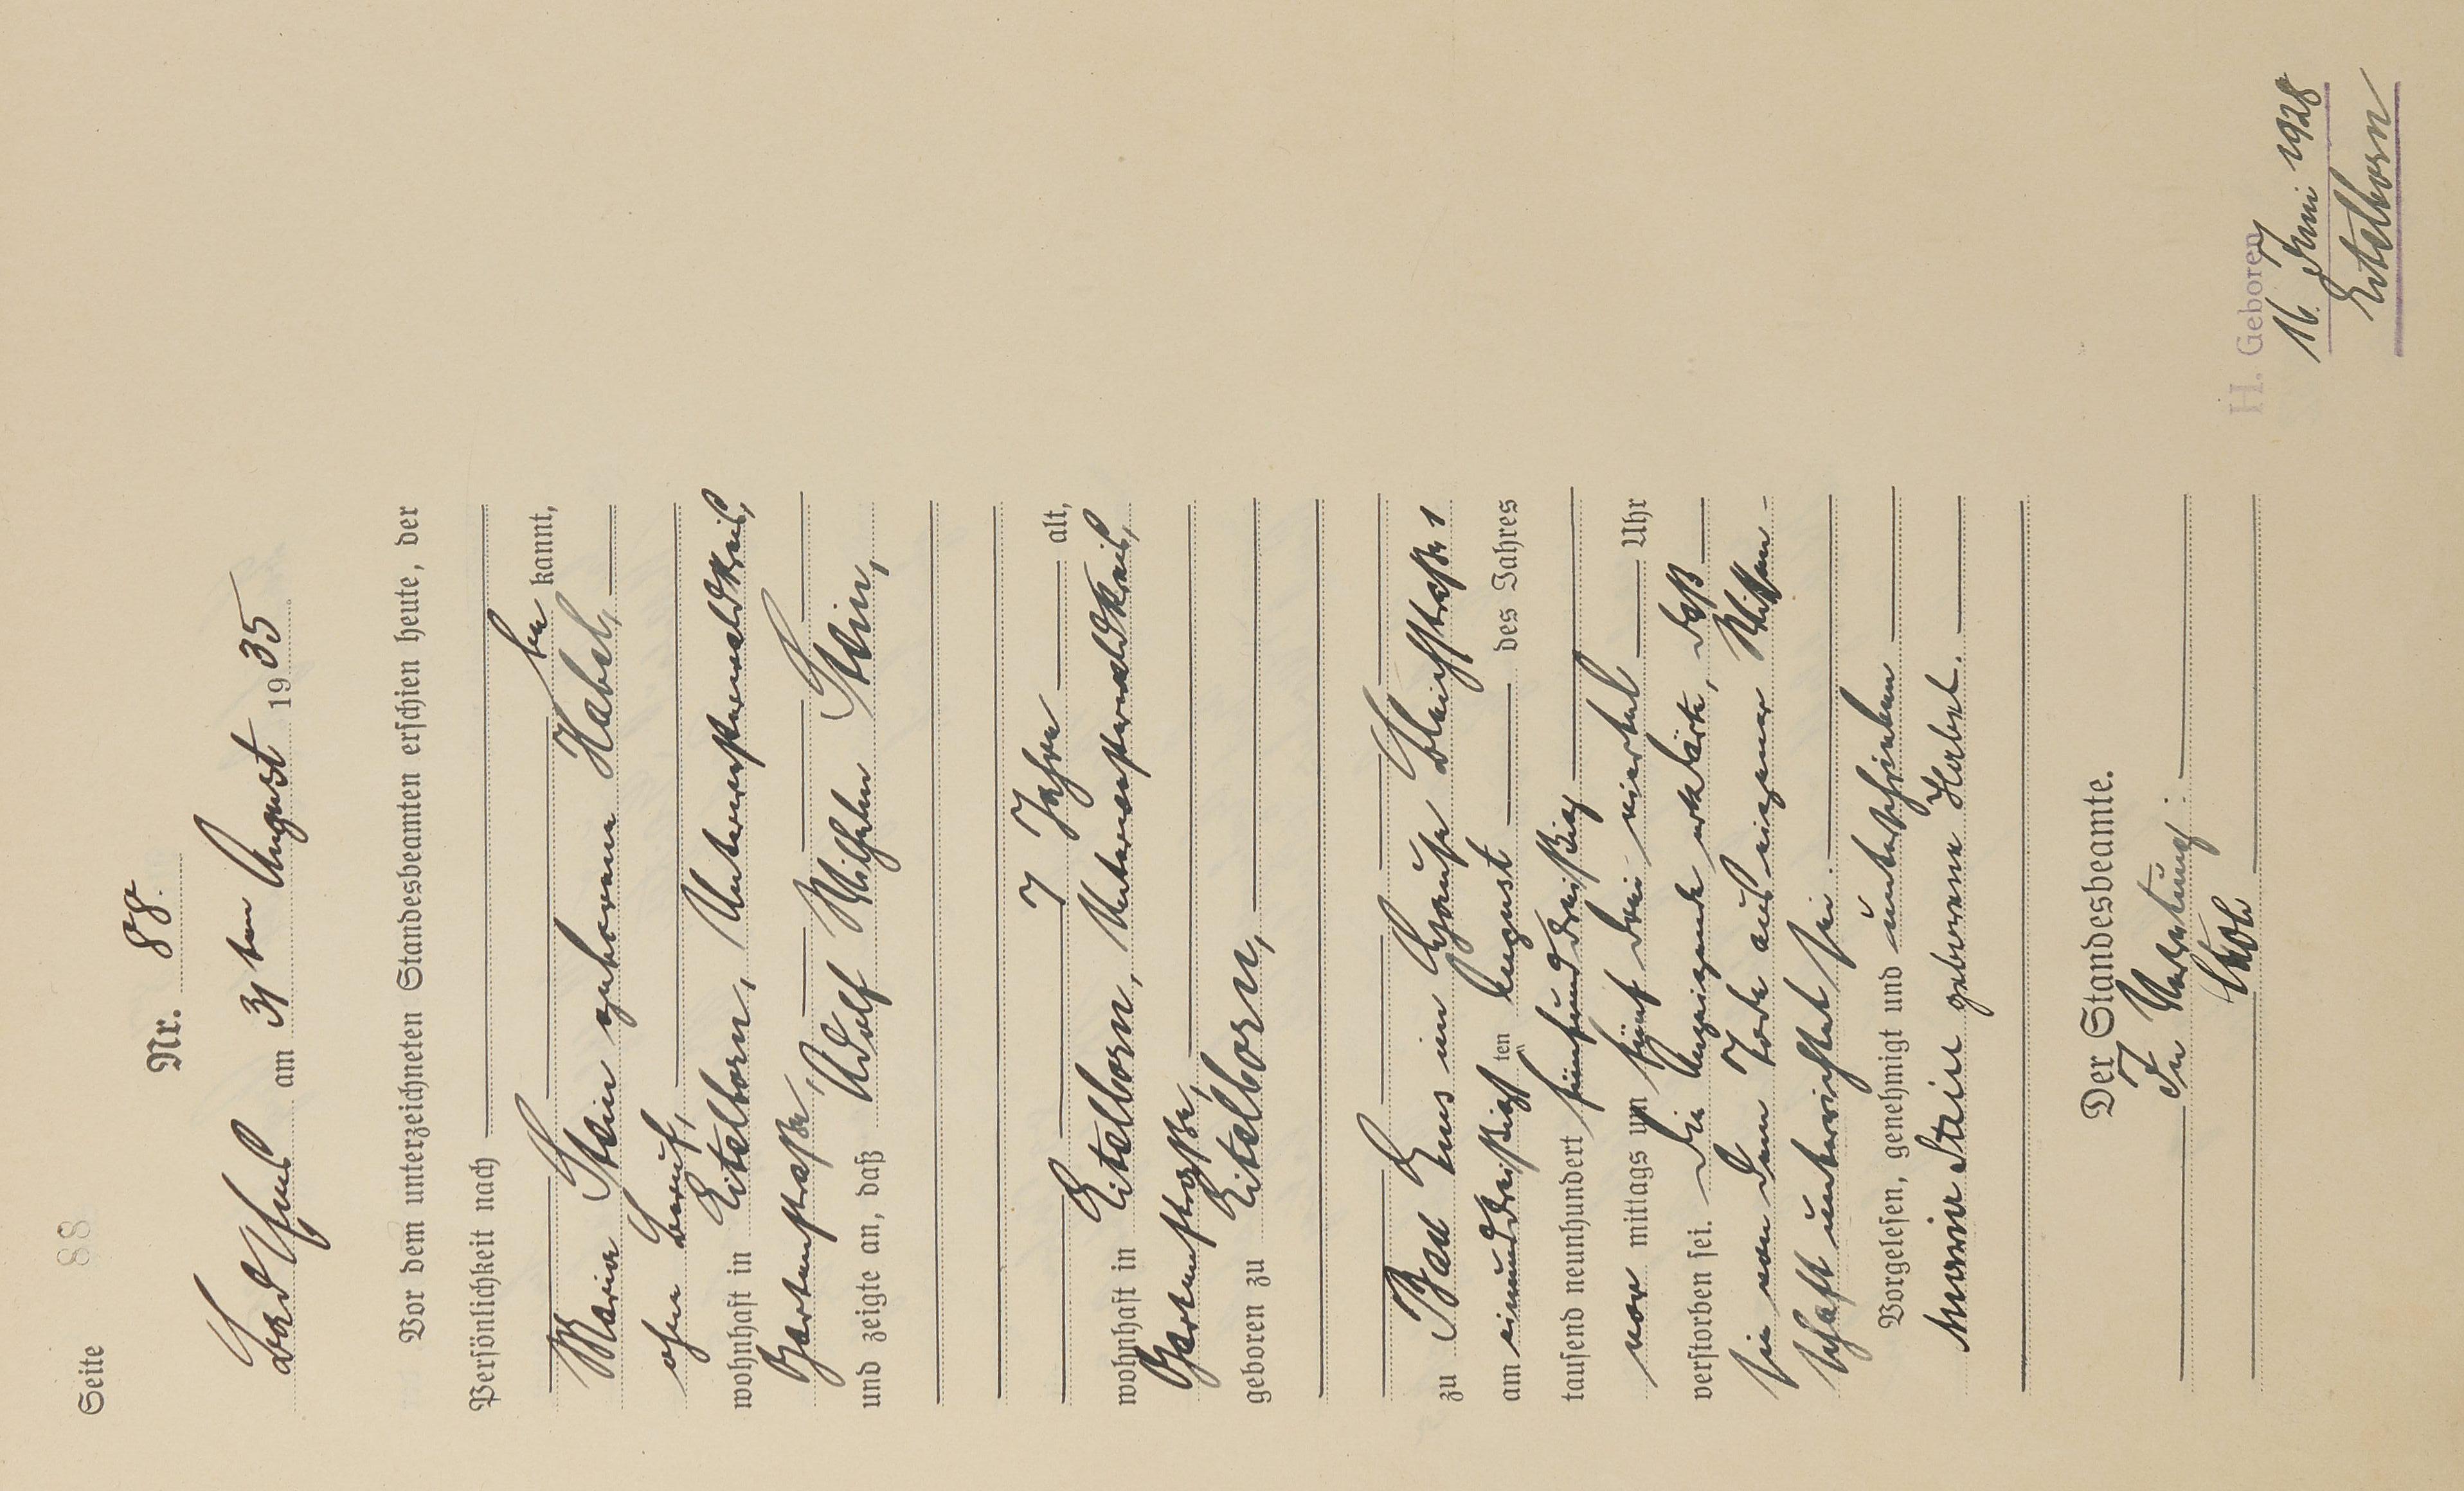 Seite 88
Nr. 88.
Bad Ems am 31ten August 1935
Vor dem unterzeichneten Standesbeamten erschien heute, der
Persönlichkeit nach
be kannt,
Maria Stein geborene Habel,
ohne Beruf,
wohnhaft in Eitelborn, Unterwesterwaldkreis,
Gartenstraße,
und zeigte an, daß Adolf Wilhelm Stein,
7 Jahre alt,
wohnhaft in Eitelborn, Unterwesterwaldkreis,
Gartenstraße,
geboren zu Eitelborn,
zu Bad Ems im Hause Bleichstraße 1
am einunddreißigsten August des Jahres
tausend neunhundert fünfunddreißig
vor mittags um fünf drei viertel Uhr
verstorben sei. Die Anzeigende erklärte, daß
sie von dem Tode aus eigener Wissen-
schaft unterrichtet sei.
Vorgelesen, genehmigt und unterschrieben
Maria Stein geborene Habel.
Der Standesbeamte.
In Vertretung:
H. Geboren
16. Juni 1928
Eitelborn